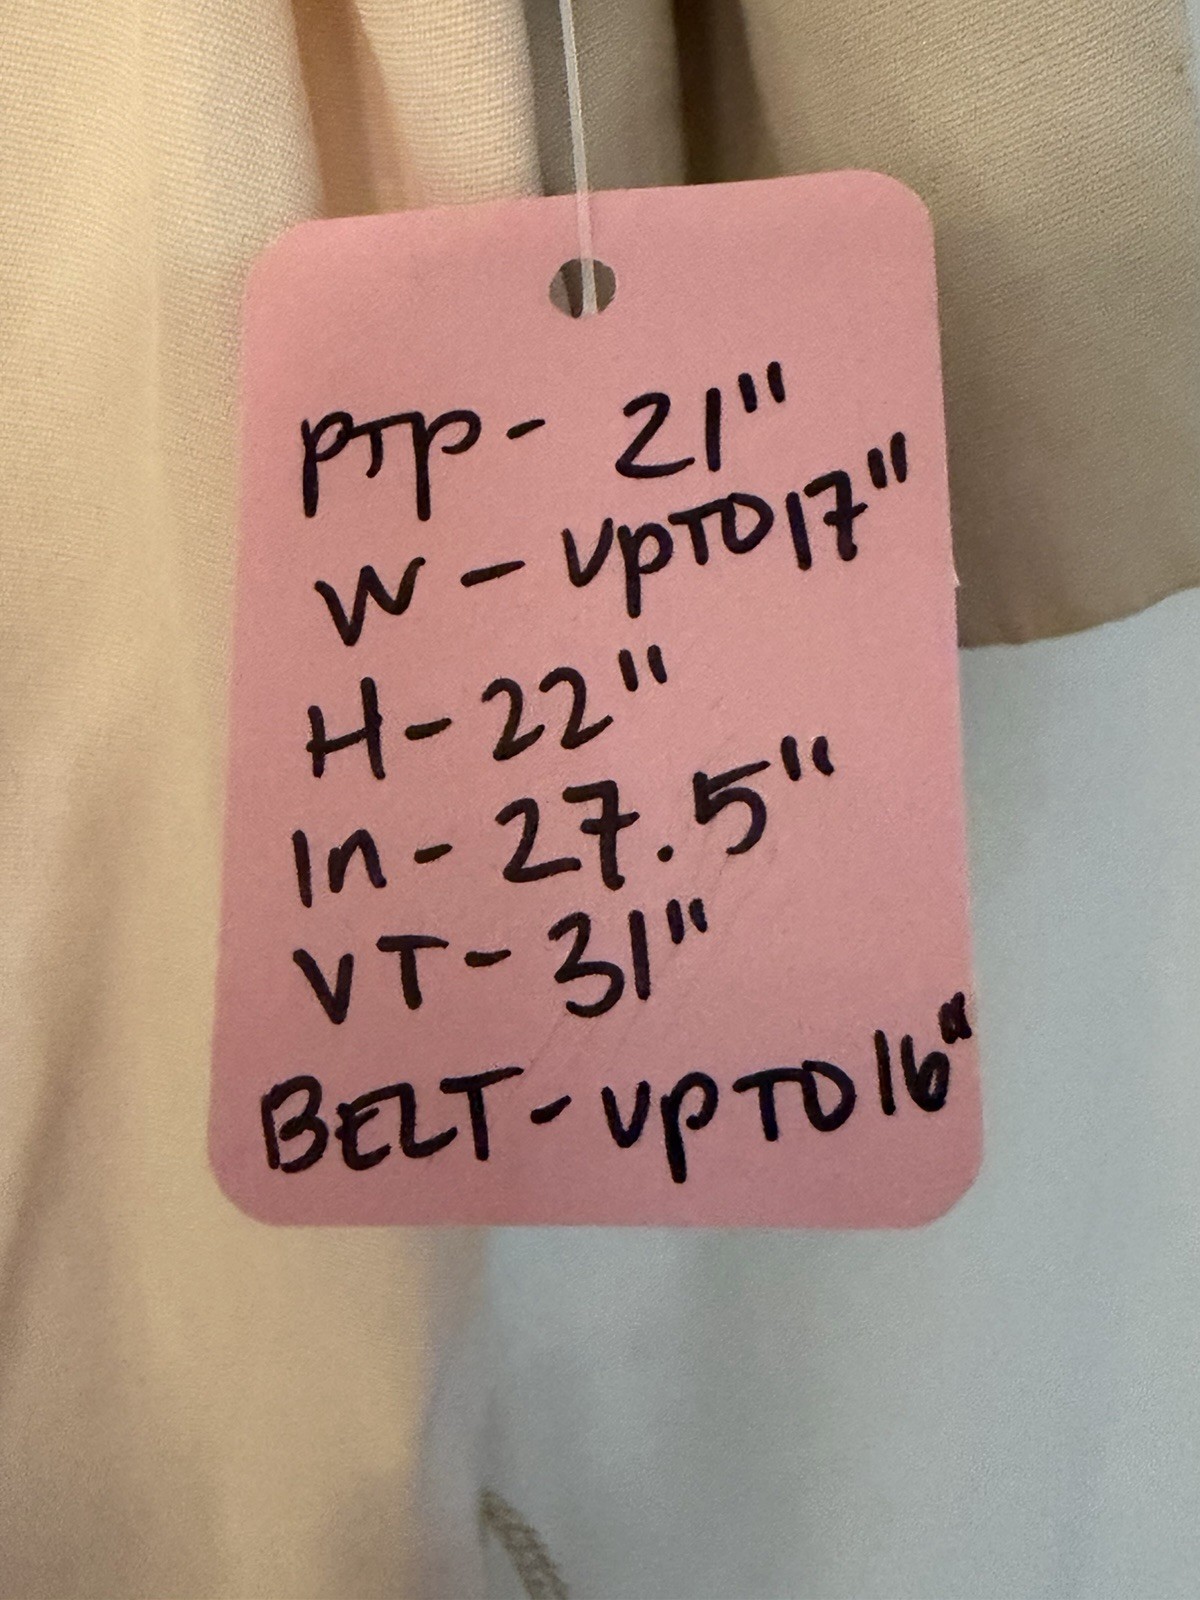 PTP- 21"
W - UP TO 17"
H- 22"
In- 27.5"
VT- 31"
BELT- UP TO 16"